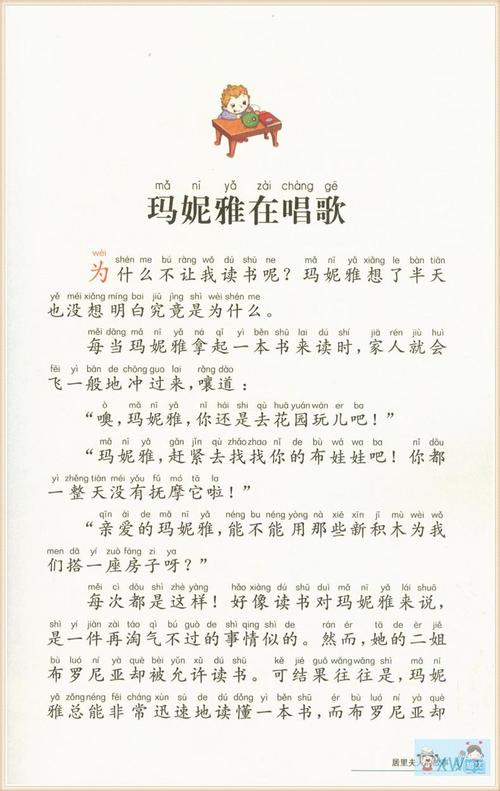 mǎ nī yǎ zài chàng gē
玛妮雅在唱歌
wèi shén me bú ràng wǒ dú shū ne mǎ nī yǎ xiǎng le bàn tiān
为什么不让我读书呢？玛妮雅想了半天
yě méi xiǎng míng bai jiū jìng shì wèi shén me
也没想明白究竟是为什么。
měi dāng mǎ nī yǎ ná qǐ yì běn shū lai dú shí jiā rén jiù huì
每当玛妮雅拿起一本书来读时，家人就会
fēi yì bān de chōng guo lai rǎng dào
飞一般地冲过来，嚷道：
ò mǎ nī yǎ nǐ hái shi qù huā yuán wán er ba
“噢，玛妮雅，你还是去花园玩儿吧！”
mǎ nī yǎ gǎn jǐn qù zhǎo zhao nǐ de bù wá wa ba nǐ dōu
“玛妮雅，赶紧去找找你的布娃娃吧！你都
yì zhěng tiān méi yǒu fǔ mó tā la
一整天没有抚摩它啦！”
qīn ài de mǎ nī yǎ néng bu néng yòng nà xiē xīn jī mù wèi wǒ
“亲爱的玛妮雅，能不能用那些新积木为我
men dā yí zuò fáng zi ya
们搭一座房子呀？”
měi cì dōu shì zhè yàng hǎo xiàng dú shū duì mǎ nī yǎ lái shuō
每次都是这样！好像读书对玛妮雅来说，
shì yí jiàn zài táo qì bú guò de shì qing shì de rán ér tā de èr jiě
是一件再淘气不过的事情似的。然而，她的二姐
bù luó ní yà què bèi yǔn xǔ dú shū kě jié guǒ wǎng wǎng shì mǎ nī
布罗尼亚却被允许读书。可结果往往是，玛妮
yǎ zǒng néng fēi cháng xùn sù de dú dǒng yì běn shū ér bù luó ní yà què
雅总能非常迅速地读懂一本书，而布罗尼亚却
居里夫